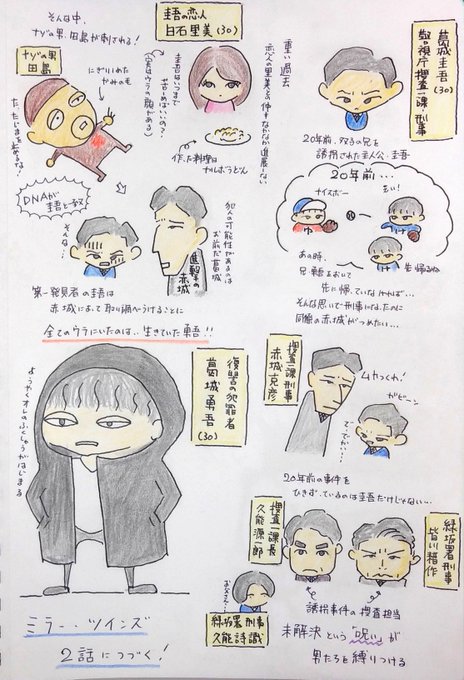 葛城圭吾
警視庁捜査一課 刑事
(30)
20年前、双子の兄を
誘拐された主人公・圭吾
20年前…
ナイスボー
ゆ
おい!
け
あの時、
兄・勇吾をおいて
先に帰っていなければ…
け
先 帰るね
そんな思いで刑事になったのに
同僚の赤城がつめたい…
圭吾の恋人
白石里美(30)
重い過去
恋人の里美との仲もなかなか進展しない
圭吾はいつまで
苦しめばいいの?
(実はウラの顔がある)
作った料理は
カルボうどん
そんな中、
ナゾの男、田島が刺される!
ナゾの男
田島
にぎりしめた
かみのモ
DNAが
圭吾と一致
そんな…
犯人の可能性があるのは
お前だ葛城
進撃の
赤城
第一発見者の圭吾は
赤城によって取り調べうけることに
全てのウラにいたのは、生きていた勇吾!!
捜査一課刑事
赤城克彦
ムカつくわ!
ガビーン
で、でかい…
復讐の犯罪者
葛城勇吾
(30)
ようやくオレのふくしゅうがはじまる
20年前の事件を
ひきずっているのは圭吾だけじゃない…
捜査一課長
久能源一郎
緑坂署刑事
皆川耕作
お父さん…
緑坂署 刑事
久能詩識
誘拐事件の捜査担当
未解決という「呪い」が
男たちを縛りつける
ミラー・ツインズ
2話につづく!